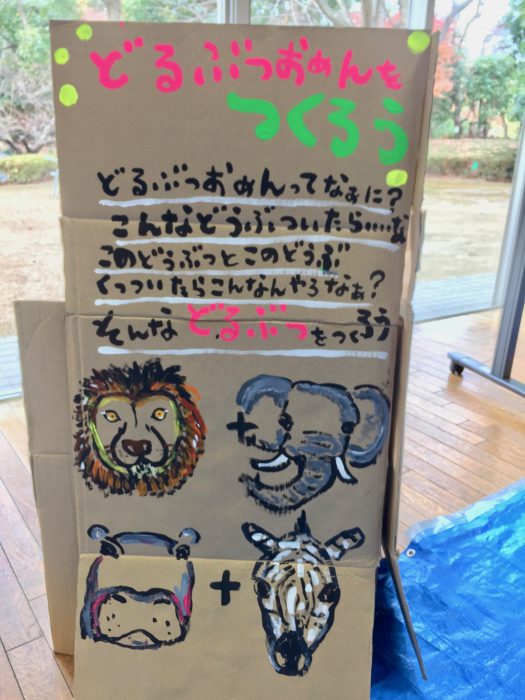 どるぶつおめんを
つくろう
どるぶつおめんってなぁに?
こんなどうぶついたら.....な
このどうぶつとこのどうぶ
くっついたらこんなんやろなぁ?
そんなどるぶつをつくろう
+
+